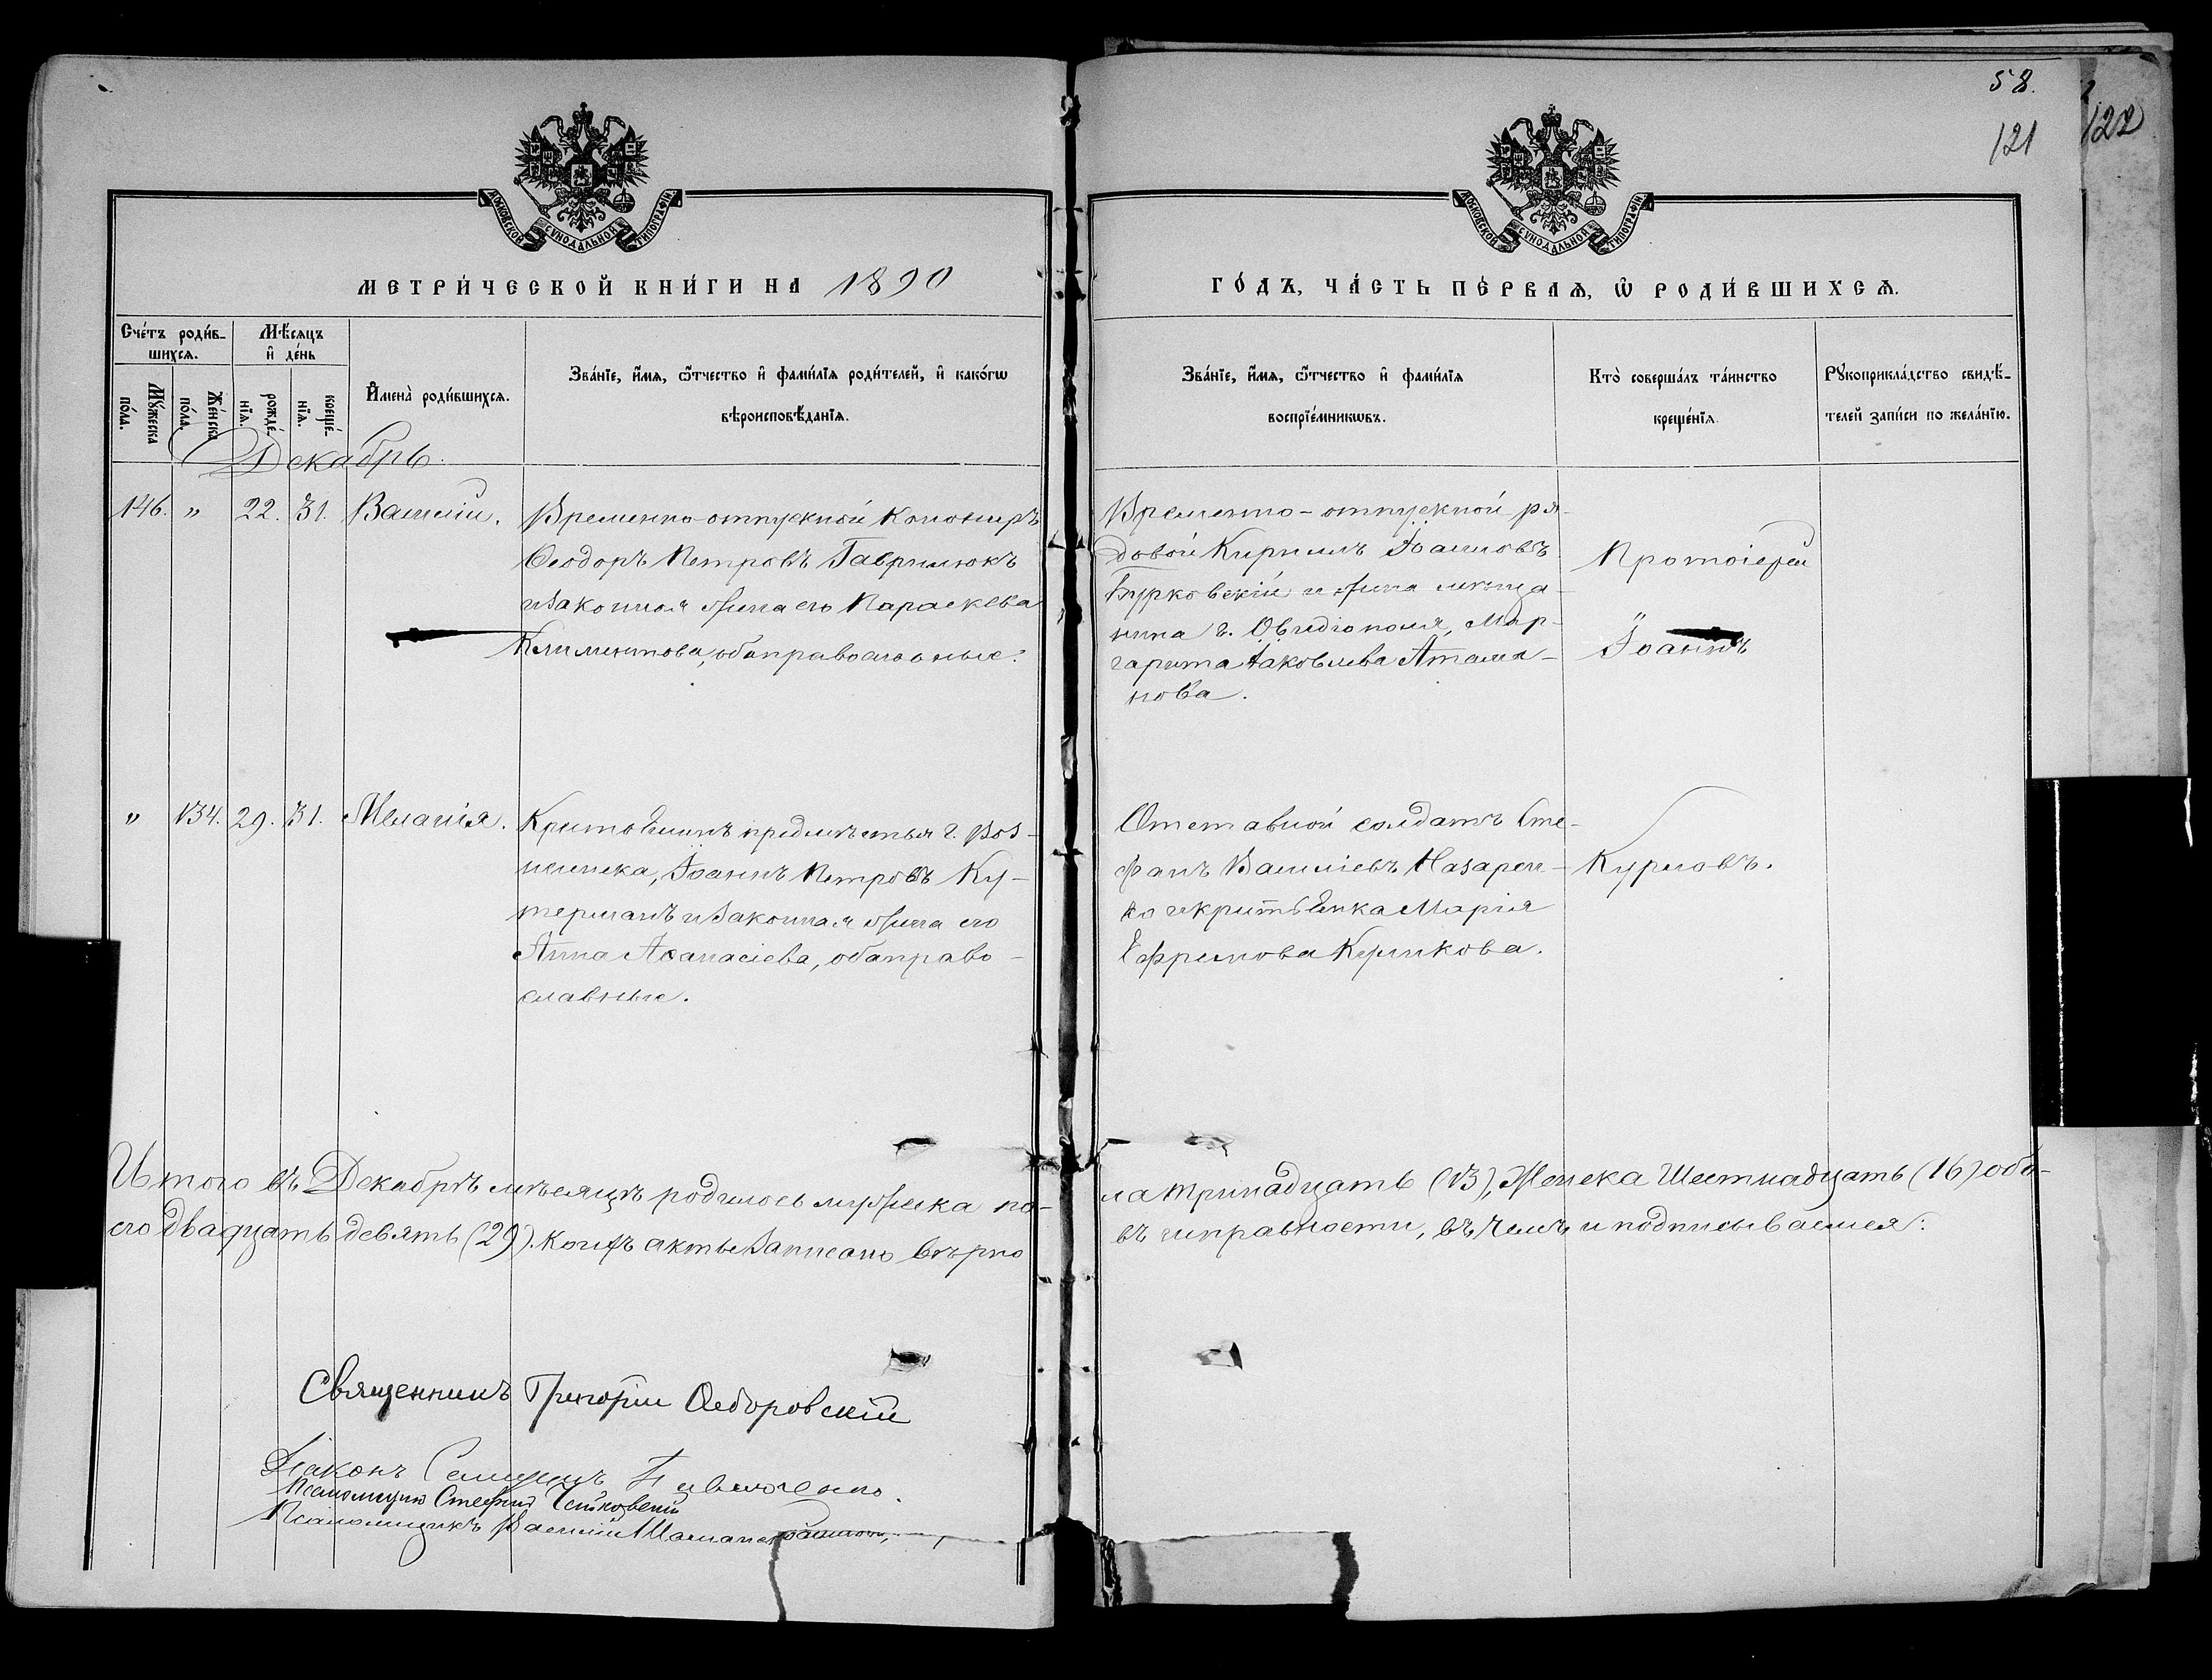 58.
121
122
МОСКОВСКОЙ СѴНОДАЛЬНОЙ ТИПОГРАФІИ
МОСКОВСКОЙ СѴНОДАЛЬНОЙ ТИПОГРАФІИ
МЕТРИ́ЧЕСКОЙ КНИ́ГИ НА 1890
ГО́ДЪ, ЧА́СТЬ ПЕ́РВАѦ, Ѽ РОДИ́ВШИХСѦ.
Сче́тъ роди́в-
шихсѧ.
Мѣ́сѧцъ
и҆ де́нь
Мꙋ́жеска
по́ла.
Же́нска
по́ла.
рожде́-
нїѧ.
креще́-
нїѧ.
И҆мена̀ роди́вшихсѧ.
Зва́нїе, и҆́мѧ, ѻ҆́тчество и҆ фами́лїѧ роди́телей, и҆ како́гѡ
вѣроисповѣ́данїѧ.
Зва́нїе, и҆́мѧ, ѻ҆́тчество и҆ фами́лїѧ
воспрїе́мникѡвъ.
Кто̀ соверша́лъ та́инство
креще́нїѧ.
Рꙋкоприкла́дство свидѣ́-
телей за́писи по жела́нїю.
Декабрь.
146. " 22. 31. Василій.
Временно-отпускной Канониръ
Ѳеодоръ Петровъ Гаврилюкъ
и законная жена его Параскева
Климентова, оба православные.
Временно-отпускной ря-
довой Кириллъ Іоанновъ
Бурковскій и жена мѣща-
нина г. Овидіополя, Мар-
гарита Іаковлева Атама-
нова.
Протоіерей
Іоаннъ
" 134. 29. 31. Меланія.
Крестьянинъ предмѣстья г. Воз-
несенска, Іоаннъ Петровъ Ку-
терманъ и законная жена его
Анна Аѳанасіева, оба право-
славные.
Отставной солдатъ Сте-
фанъ Василіевъ Назарен-
ко и крестьянка Марія
Ефремова Куликова.
Курловъ.
Итого въ Декабрѣ мѣсяцѣ родилось мужеска по-
ла тринадцать (13), Женска Шестнадцать (16) обо-
его двадцать девять (29). Коихъ акты записано вѣрно
въ исправности, въ чемъ и подписываемся:
Священникъ Григорій Ѳедоровскій
Діаконъ Павлюченко.
Псаломщикъ Стефанъ
Псаломщикъ Василій